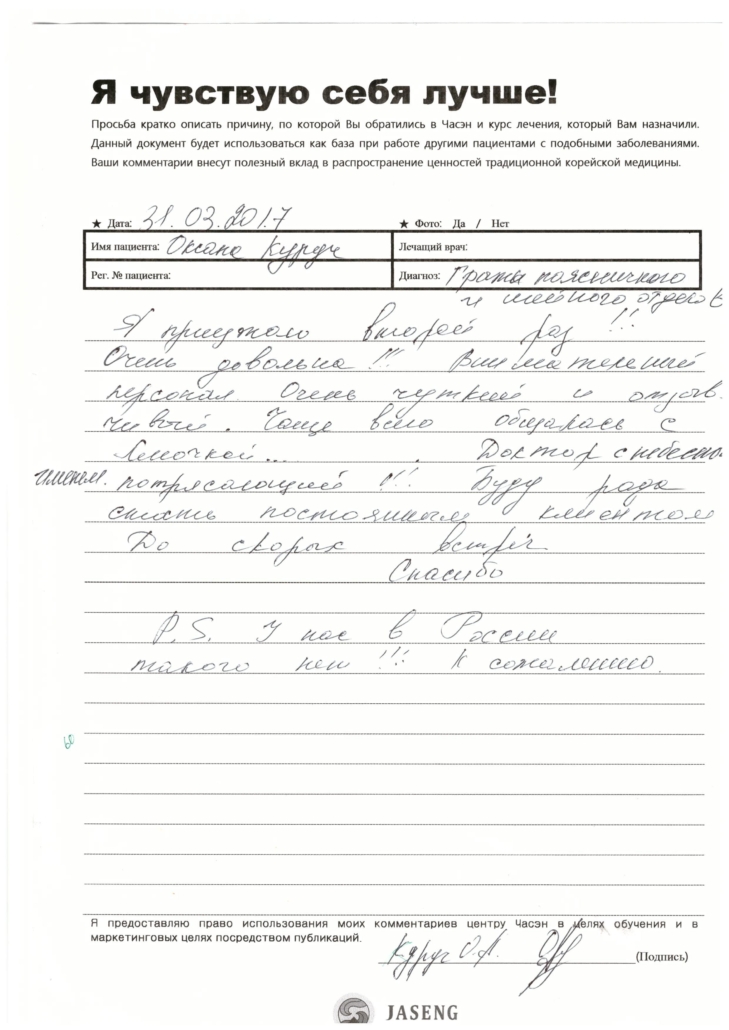 Я чувствую себя лучше!
Просьба кратко описать причину, по которой Вы обратились в Часэн и курс лечения, который Вам назначили.
Данный документ будет использоваться как база при работе другими пациентами с подобными заболеваниями.
Ваши комментарии внесут полезный вклад в распространение ценностей традиционной корейской медицины.
★ Дата: 31.03.2017 ★ Фото: Да / Нет
Имя пациента: Оксана Лечащий врач:
Рег. № пациента: Диагноз: поясничного
и шейного отделов
Я приезжаю второй раз !!!
Очень довольна !!! Внимательный
персонал. Очень чуткий и отзыв
чивый. Чаще всего общалась с
... . Доктор с небесным
именем. потрясающий !!! Буду рада
стать постоянным клиентом
До скорых встреч
Спасибо
P.S. У нас в России
такого нет !!! К сожалению.
60
Я предоставляю право использования моих комментариев центру Часэн в целях обучения и в
маркетинговых целях посредством публикаций.
(Подпись)
JASENG